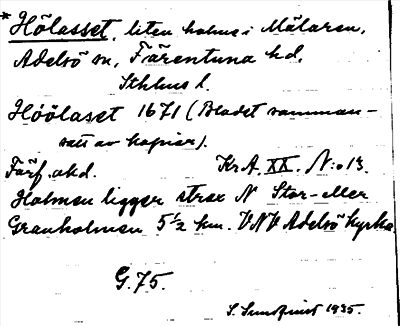 *Hölasset, liten holme i Mälaren,
Adelsö sn, Färentuna hd,
Sthlms l.
Höölaset 1671 (Bladet samman-
satt av kopior).
Förf. okd. KrA. XX. N:o 13.
Holmen ligger strax N Stor- eller
Granholmen 5 1/2 km. VNV Adelsö kyrka.
G. 75.
S. Sundquist 1935.